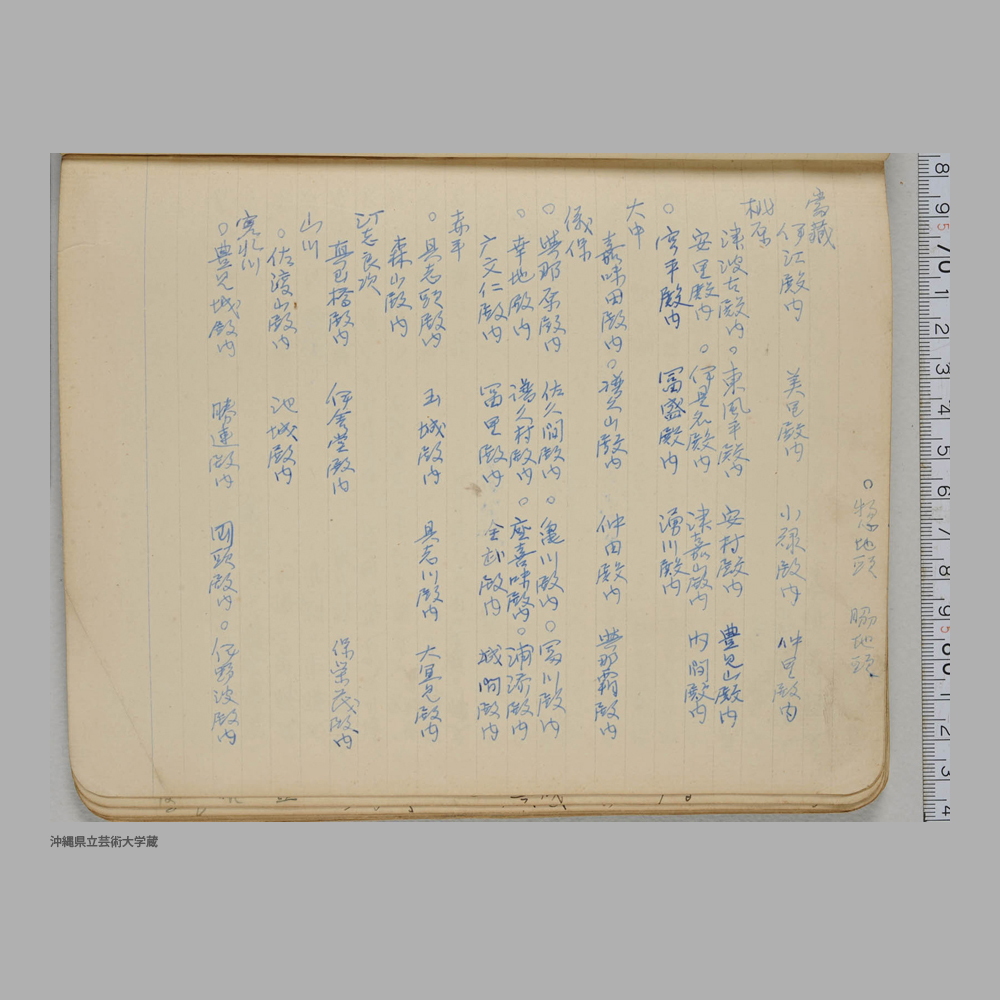 ○惣地頭　脇地頭
當蔵
伊江殿内　美里殿内　小禄殿内　仲里殿内
桃原
津波古殿内　○東風平殿内　安村殿内　豊見山殿内
安里殿内　○伊是名殿内　津嘉山殿内　内間殿内
○宮平殿内　冨盛殿内　湧川殿内
大中
嘉味田殿内　○譜久山殿内　仲田殿内　與那覇殿内
儀保
○與那原殿内　佐久間殿内　○亀川殿内　○冨川殿内
○幸地殿内　譜久村殿内　○座喜味殿内　○浦添殿内
六文仁殿内　冨里殿内　金武殿内　城間殿内
赤平
○具志頭殿内　玉城殿内　具志川殿内　大宜見殿内
森山殿内
汀志良次
真玉橋殿内　伊舎堂殿内　保栄茂殿内
山川
○佐渡山殿内　池城殿内
寒水川
○豊見城殿内　勝連殿内　国頭殿内　○伊野波殿内
沖縄県立芸術大学蔵
8 9 5 70 1 2 3 4 5 6 7 8 9 5 80 1 2 3 4